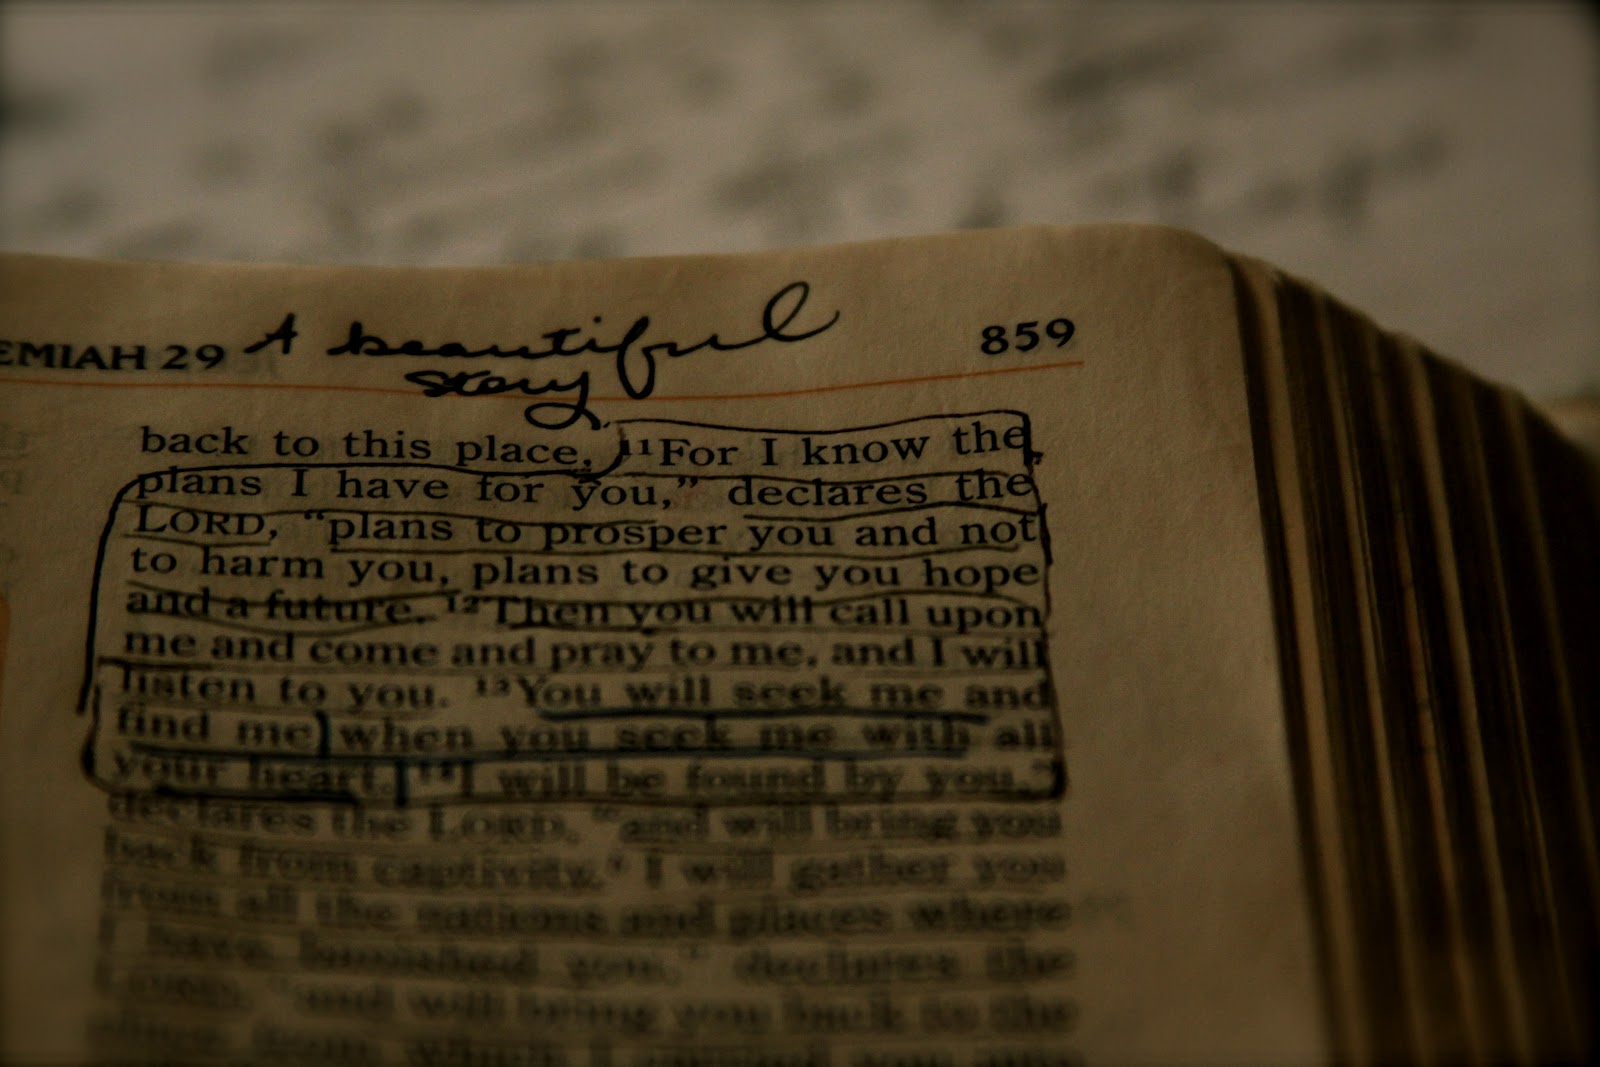 EMIAH 29 A beautiful 859
story
back to this place. ¹¹For I know the
plans I have for you,” declares the
LORD, “plans to prosper you and not
to harm you, plans to give you hope
and a future. ¹²Then you will call upon
me and come and pray to me, and I will
listen to you. ¹³You will seek me and
find me when you seek me with all
your heart. ¹⁴I will be found by you,”
declares the LORD, “and will bring you
back from captivity. I will gather you
from all the nations and places where
I have banished you,” declares the
LORD, “and will bring you back to the
place from which I carried you into